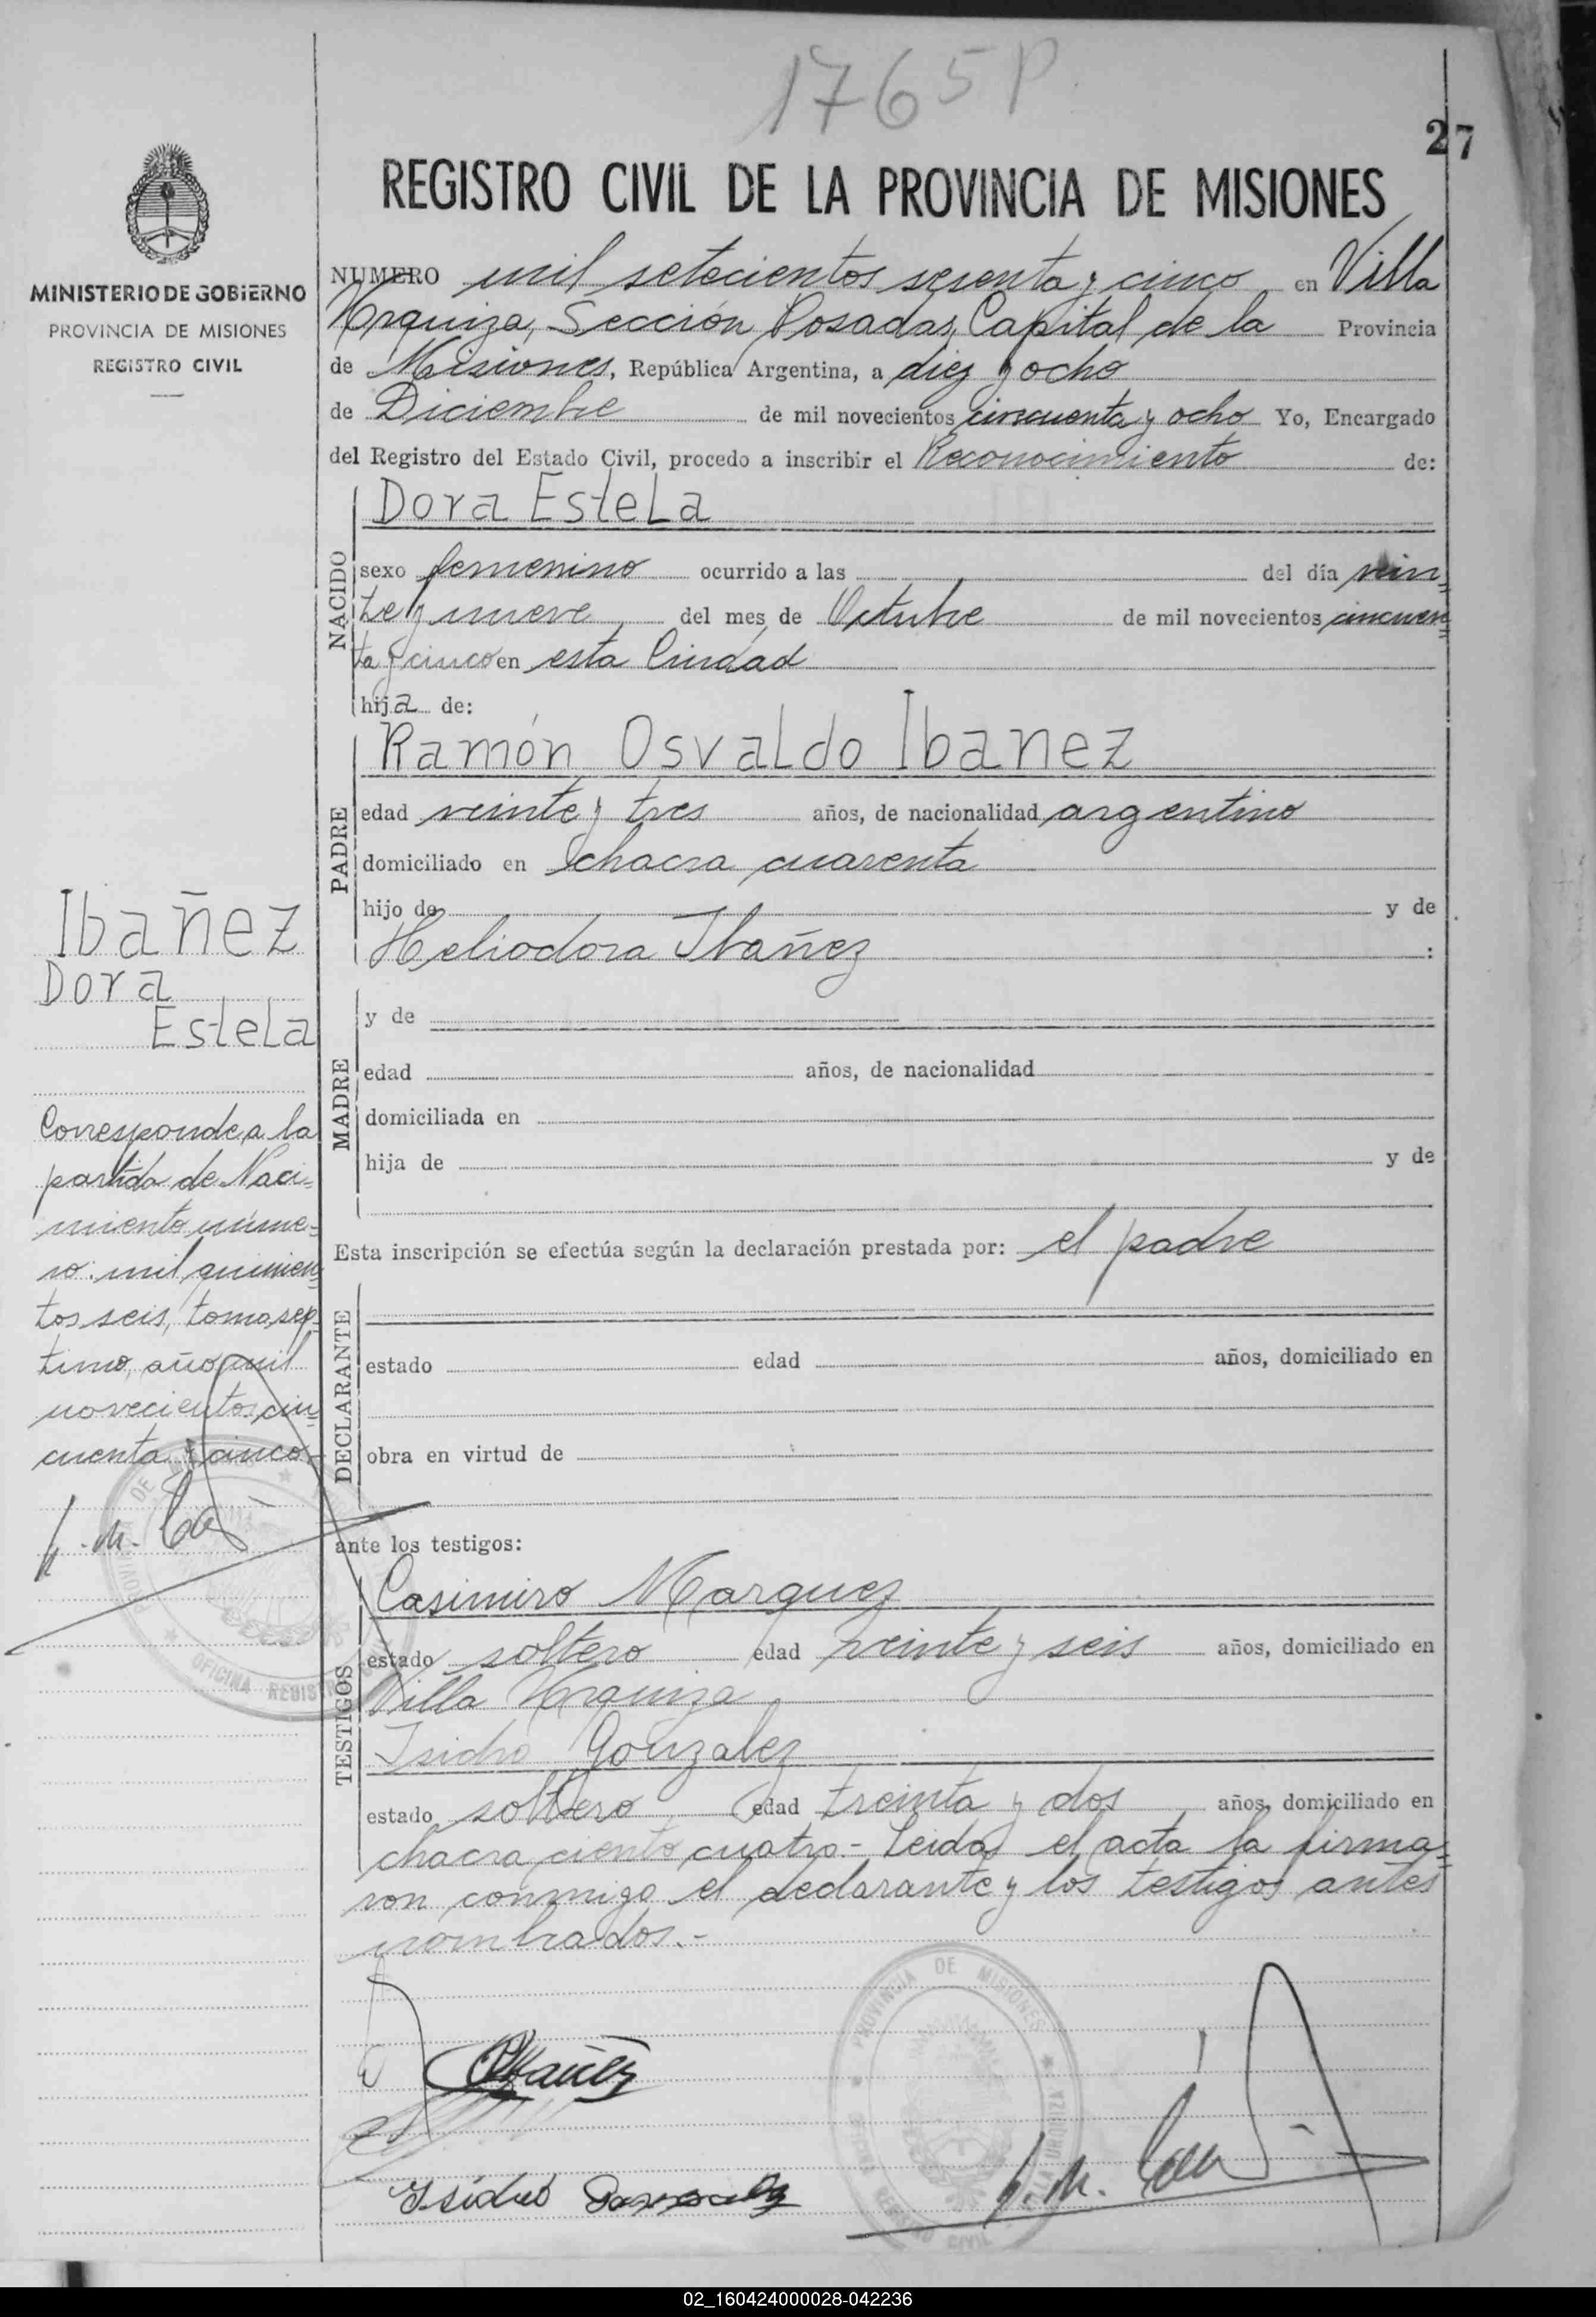 1765 P.
27
REGISTRO CIVIL DE LA PROVINCIA DE MISIONES
MINISTERIO DE GOBIERNO
PROVINCIA DE MISIONES
REGISTRO CIVIL
NUMERO mil setecientos sesenta y cinco en Villa
Urquiza, Sección Posadas, Capital de la Provincia
de Misiones, República Argentina, a diez y ocho
de Diciembre de mil novecientos cincuenta y ocho Yo, Encargado
del Registro del Estado Civil, procedo a inscribir el Reconocimiento de:
NACIDO
Dora Estela
sexo femenino ocurrido a las del día vein=
te y nueve del mes de Octubre de mil novecientos cincuen=
ta y cinco en esta Ciudad
hija de:
PADRE
Ramón Osvaldo Ibanez
edad veinte y tres años, de nacionalidad argentino
domiciliado en chacra cuarenta
hijo de y de
Heliodora Ibañez :
MADRE
y de
edad años, de nacionalidad
domiciliada en
hija de y de
Esta inscripción se efectúa según la declaración prestada por: el padre
DECLARANTE
estado edad años, domiciliado en
obra en virtud de
ante los testigos:
TESTIGOS
Casimiro Marquez
estado soltero edad veinte y seis años, domiciliado en
Villa Urquiza
Isidro Gonzalez
estado soltero edad treinta y dos años, domiciliado en
chacra ciento cuatro.- Leida el acta la firma=
ron conmigo el declarante y los testigos antes
nombrados.-
Ibañez
Dora
Estela
Corresponde a la
partida de Naci=
miento núme=
ro mil quinien=
tos seis, tomo sép=
timo, año mil
novecientos cin=
cuenta y cinco.-
OFICINA REGISTRO
Ibañez
Isidro Gonzalez
PROVINCIA DE MISIONES
REGISTRO CIVIL
02_160424000028-042236